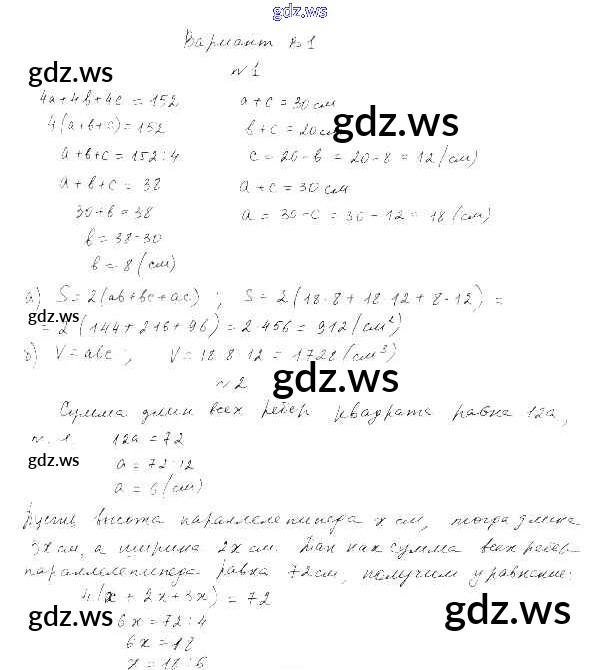 gdz.ws
Вариант №1
№1
gdz.ws
4a+4b+4c=152
4(a+b+c)=152
a+b+c=152:4
a+b+c=38
30+b=38
b=38-30
b=8(см)
a+c=30см
b+c=20см
gdz.ws
c=20-b=20-8=12(см)
a+c=30см
a=30-c=30-12=18(см)
а) S=2(ab+bc+ac); S=2(18·8+18·12+8·12)=
gdz.ws
=2(144+216+96)=2·456=912(см²)
б) V=abc; V=18·8·12=1728(см³)
gdz.ws
№2
Сумма длин всех ребер квадрата равна 12a,
12a=72
gdz.ws
a=72:12
a=6(см)
Пусть высота параллелепипеда x см, тогда длина
3x см, а ширина 2x см. Так как сумма всех ребер
параллелепипеда равна 72см, получим уравнение:
4(x+2x+3x)=72
gdz.ws
6x=72:4
gdz.ws
6x=18
x=18:6